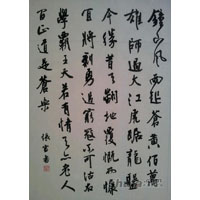 鍾山風雨起蒼黃百萬
雄師過大江虎踞龍盤
今勝昔天翻地覆慨而慷
宜將剩勇追窮寇不可沽名
學霸王天若有情天亦老人
間正道是滄桑